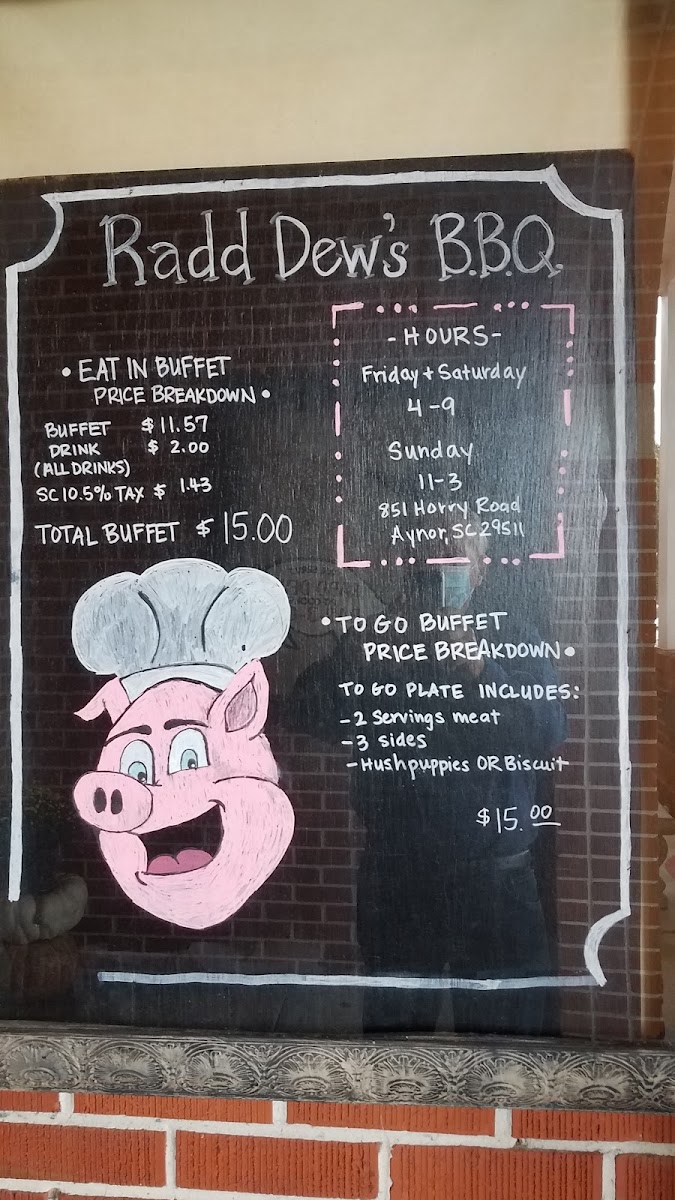 Radd Dew's B.B.Q.
• EAT IN BUFFET
PRICE BREAKDOWN •
BUFFET $11.57
DRINK $ 2.00
(ALL DRINKS)
SC 10.5% TAX $ 1.43
TOTAL BUFFET $15.00
- HOURS -
Friday + Saturday
4-9
Sunday
11-3
851 Horry Road
Aynor, SC 29511
• TO GO BUFFET
PRICE BREAKDOWN •
TO GO PLATE INCLUDES:
- 2 Servings meat
- 3 sides
- Hushpuppies OR Biscuit
$15.00